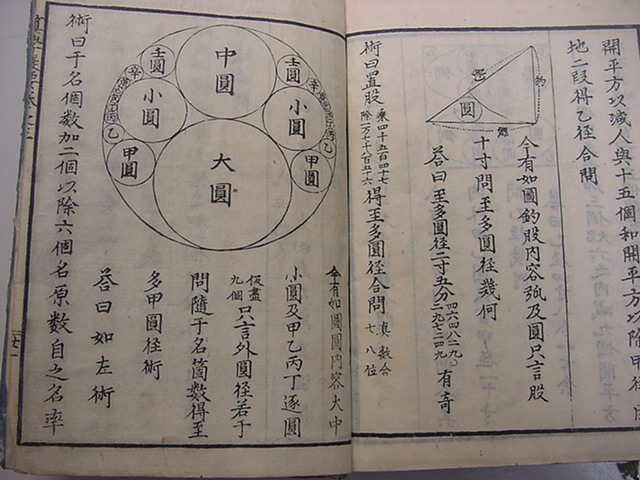 開平方以減人與十五個和開平方以除甲徑
地二段得乙徑合問
圓
今有如圖鈎股內容弧及圓只言股
十寸問至多圓徑幾何
答曰至多圓徑二寸五分四六四八二九。二九七二四九有奇
術曰置股乘四十五百四十七除一万七十八百五十六得至多圓徑合問真數合七八位
今有如圖圓內容大中
小圓及甲乙丙丁逐圓
仮畫九個只言外圓徑若干
問隨于名箇數得至
多甲圓徑術
答曰如左術
中圓
壬圓
壬圓
小圓
小圓
乙
乙
甲圓
甲圓
大圓
術曰于名個數加二個以除六個名原數自之名率